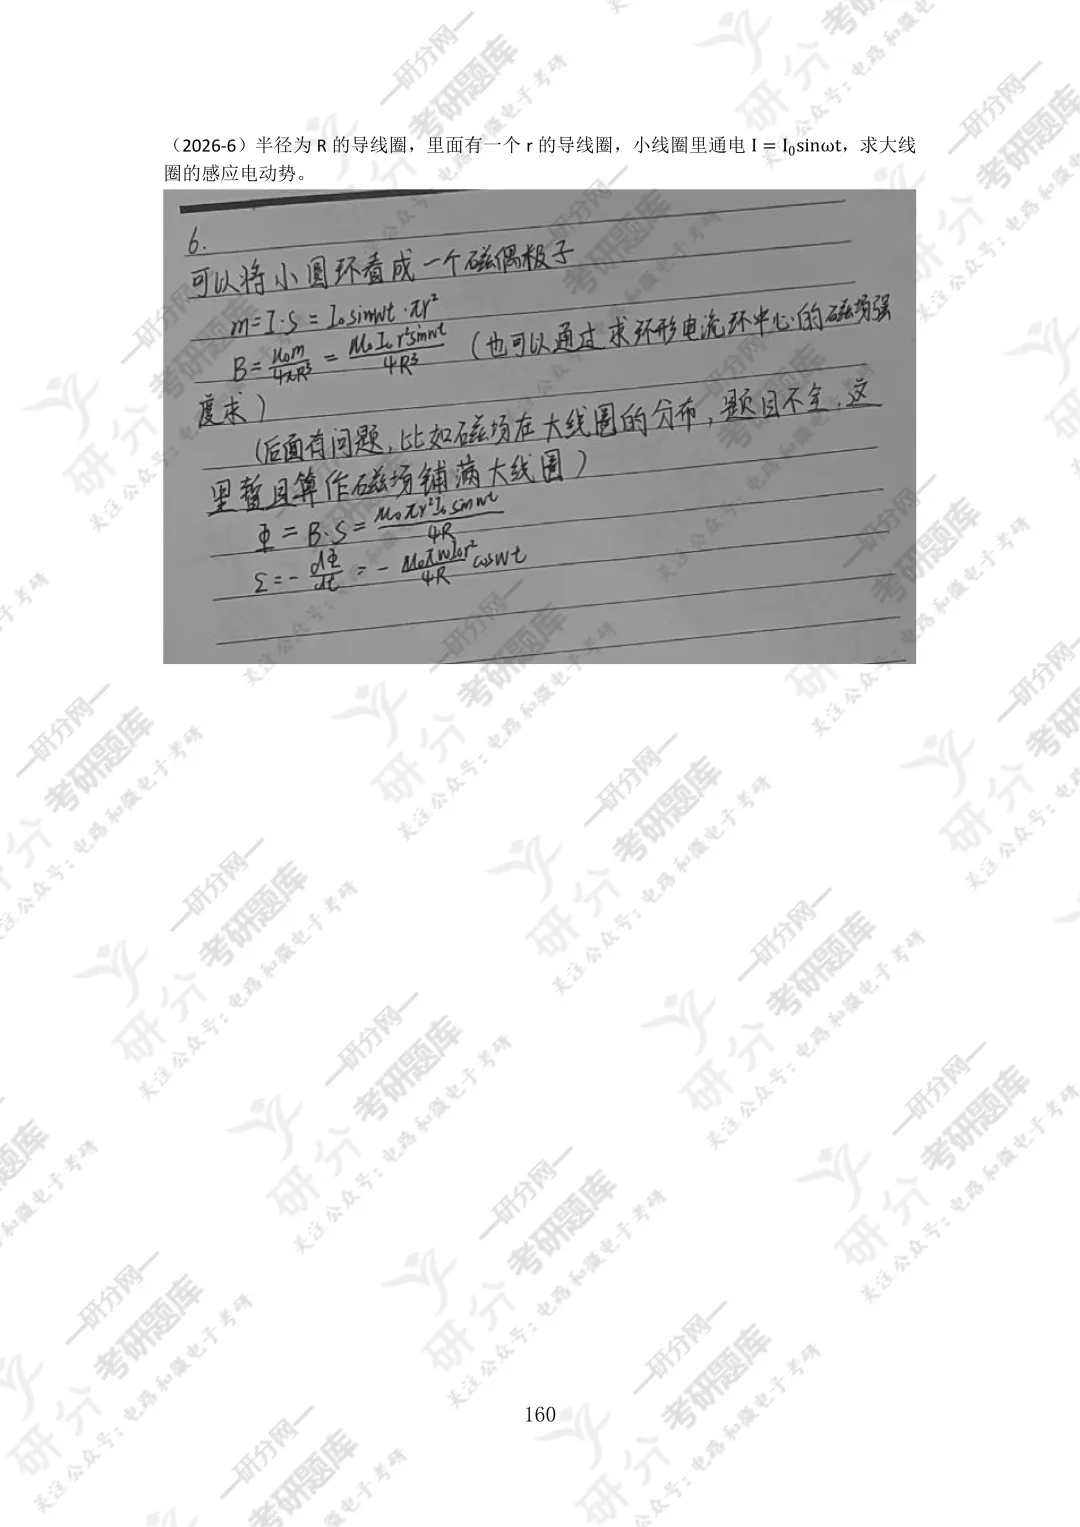 （2026-6）半径为 R 的导线圈，里面有一个 r 的导线圈，小线圈里通电 I = I₀sinωt，求大线
圈的感应电动势。
6.
可以将小圆环看成一个磁偶极子
m=I·S = I₀sinwt·πr²
B= μ₀m/4πR³ = μ₀I₀r²sinwt/4R³ （也可以通过求环形电流环中心的磁场强
度求）
（后面有问题，比如磁场在大线圈的分布，题目不全，这
里暂且算作磁场铺满大线圈）
Φ = B·S = μ₀πr²I₀sinwt/4R
ε = - dΦ/dt = - μ₀πwI₀r²/4R coswt
160
研分网
考研题库
研分
关注公众号：电路和微电子考研